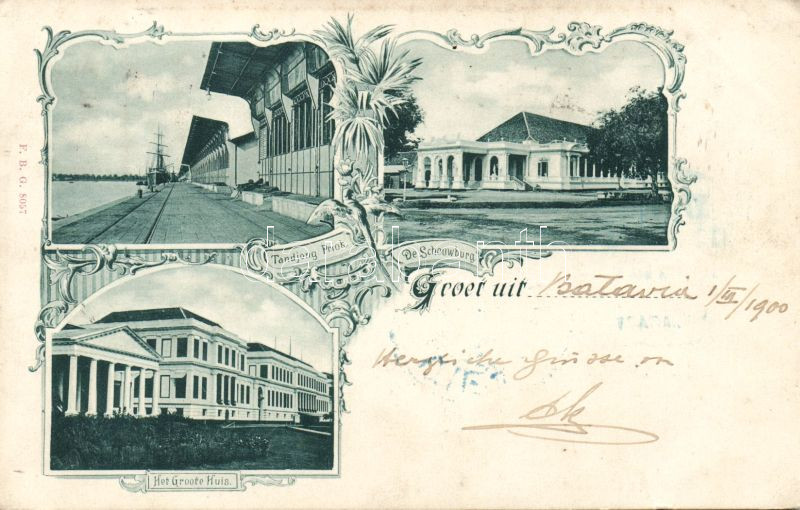 F. B. G. 8057
Tandjong Priok.
De Schouwburg.
Groet uit Batavia 1/III/1900
Herzliche Grüsse von
Het Groote Huis.